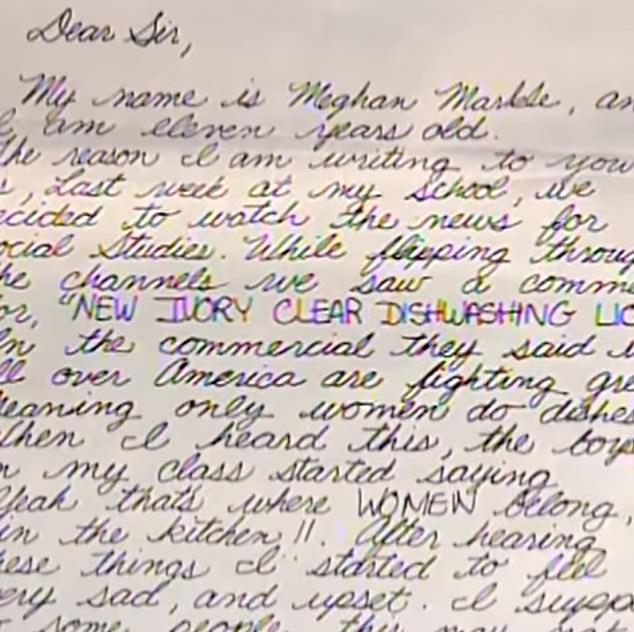 Dear Sir,
My name is Meghan Markle, an
I am eleven years old.
The reason I am writing to you
s, Last week at my school, we
ecided to watch the news for
ocial Studies. While flipping throug
he channels we saw a comme
or, "NEW IVORY CLEAR DISHWASHING LIQ
In the commercial they said w
ll over America are fighting gre
Meaning only women do dishes
When I heard this, the boys
n my class started saying
Yeah thats where WOMEN belong,
in the kitchen!!. After hearing
hese things I started to feel
ery sad, and upset. I suppo
some people, this may not